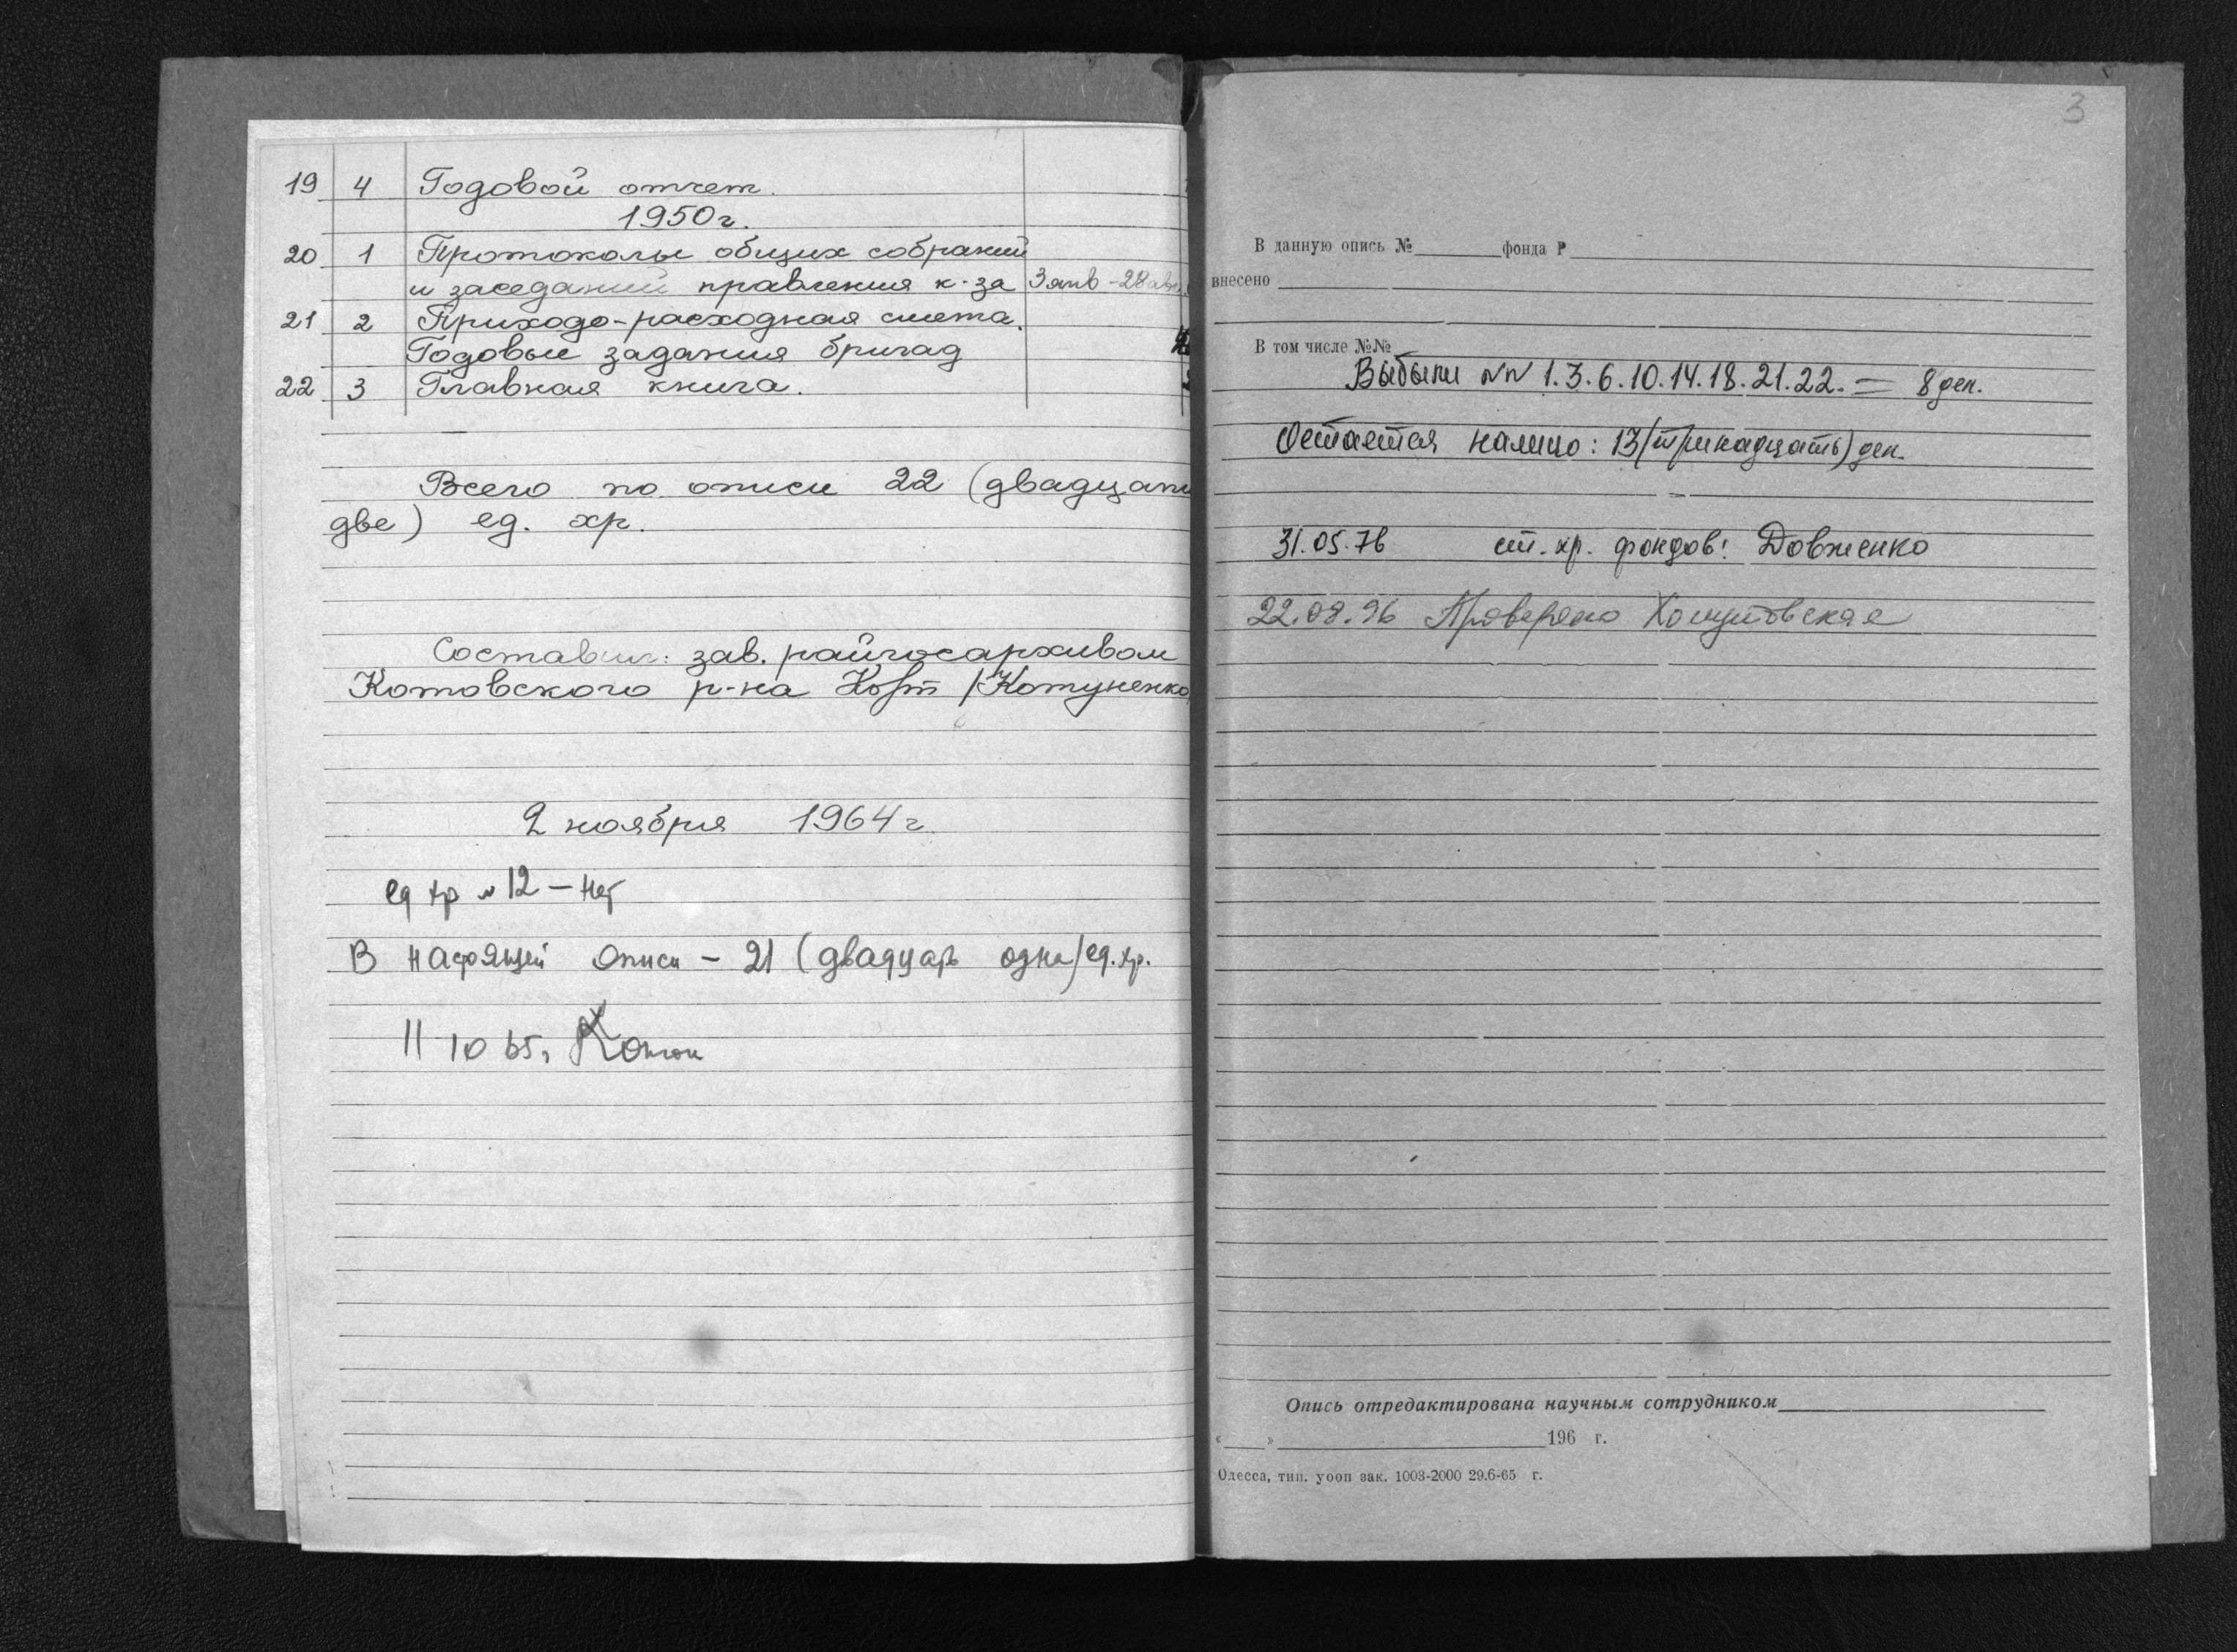 19 4 Годовой отчет.
1950г.
20 1 Протоколы общих собраний
и заседаний правления к-за 3 янв - 28
21 2 Приходо-расходная смета.
Годовые задания бригад
22 3 Главная книга.
Всего по описи 22 (двадцать
две) ед. хр.
Составил: зав. райгосархивом
Котовского р-на /Котуненко
2 ноября 1964 г.
ед хр № 12 - нет
В настоящей описи - 21 (двадцать одна) ед. хр.
11 10 65г
3
В данную опись № фонда Р
внесено
В том числе №№
Выбыли NN 1.3.6.10.14.18.21.22. = 8 дел.
Остается налицо: 13 (тринадцать) дел.
31.05.76 ст. хр. фондов: Довженко
22.08.96 Проверено
Опись отредактирована научным сотрудником
« » 196 г.
Одесса, тип. уооп зак. 1003-2000 29.6-65 г.